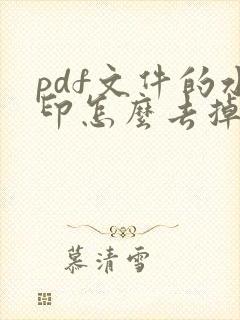 pdf文件的水
印怎麼去掉
慕清雪